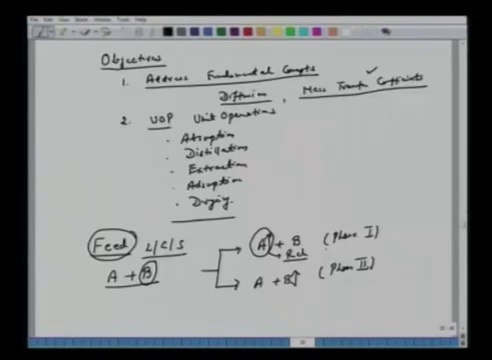 Objectives
1. Address Fundamental Concepts
Diffusion, Mass Transfer Coefficients
2. UOP Unit Operations
. Absorption
. Distillation
. Extraction
. Adsorption
. Drying
Feed L/G/S
A + B
A↑ + B (Phase I)
Rich
A + B↑ (Phase II)